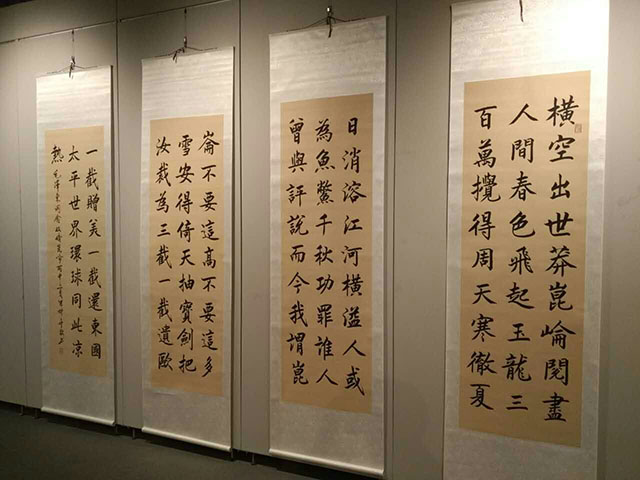 橫空出世莽崑崙閱盡
人間春色飛起玉龍三
百萬攪得周天寒徹夏
日消溶江河橫溢人或
為魚鱉千秋功罪誰人
曾與評說而今我謂崑
崙不要這高不要這多
雪安得倚天抽寶劍把
汝截為三截一截遺歐
一截贈美一截還東國
太平世界環球同此涼
熱